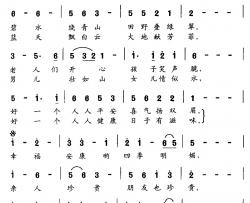 6 · 6 · 5 6 3 · 5 5 5 2 1 2 ·
碧水 绕青山 田野叠绿翠
蓝天 飘白云 大地献芳菲
3 · 5 · 6 · 5 3 2 1 1 · 1 2 1 6 ·
老人们开心 孩子笑声脆
男儿壮如山 女儿情似水
5 · 1 · 1 6 6 3 5 5 6 2 2 1 · 1 ·
好一个人人平安喜气扬双眉
好一个人人健康日子有滋味
※
1 · 2 · 1 6 5 · 1 · 2 · 1 · 6 5
幸福安康哟四季明媚
1 · 2 · 3 5 3 · 5 6 5 2 2 1 ·
亲人珍贵 朋友也珍贵